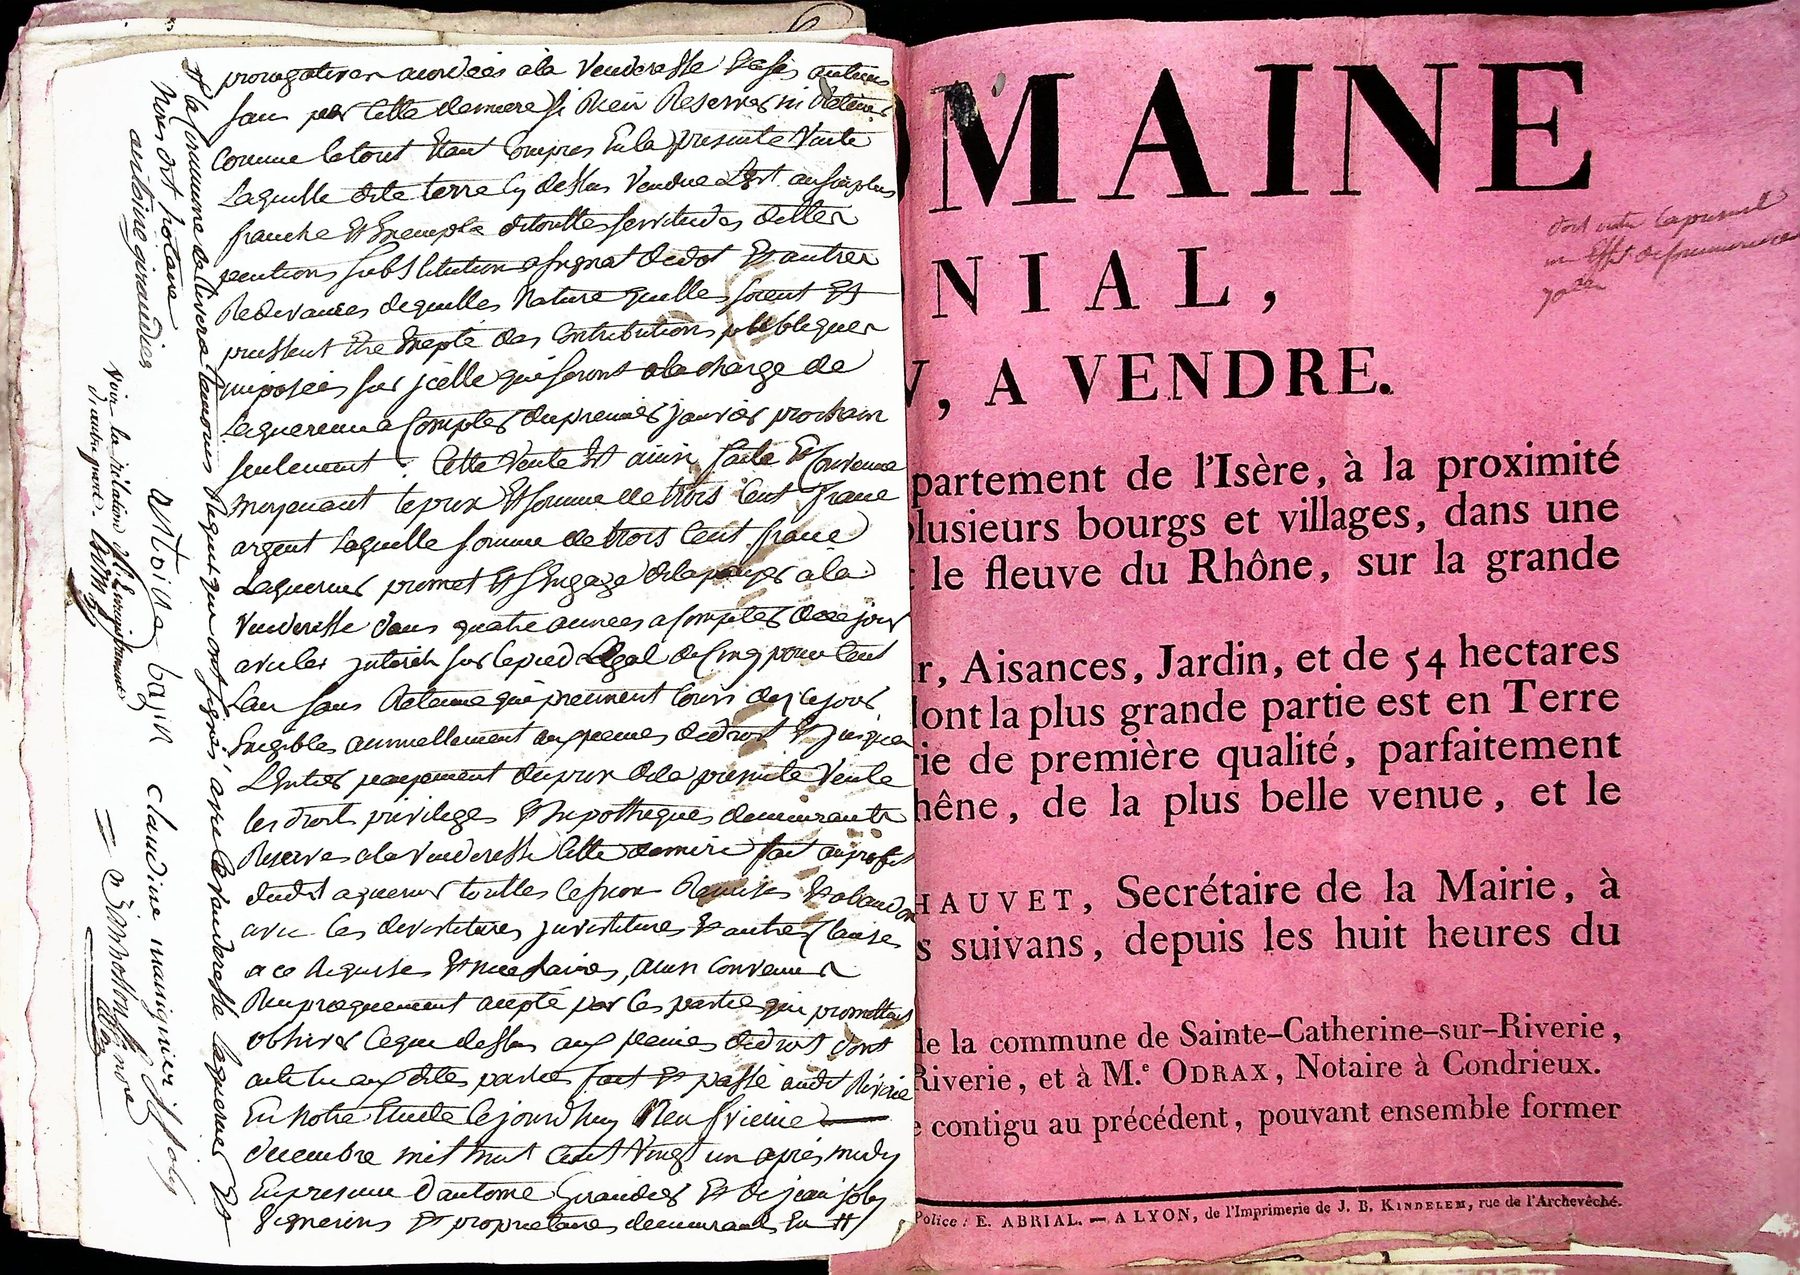 prerogatives acordées ala Venderesse et a ses auteurs
sans par cette derniere si Rien Reserver ni Retenir
Comme le tout Etant Compris En la presente Vente
Laquelle dite terre Cy dessus Vendue Est au surplus
franche et Exempte de touttes servitudes
substitution assignat de dot et autres
Redevances de quelles Nature quelles soient et
puissent Etre Exepté des Contributions publiques
imposées sur jcelle qui seront ala charge de
Laquereur a Compter du premier janvier prochain
seulement. Cette Vente Est ainsi faite et Convenue
moyenant le prix et somme de trois Cent franc
argent Laquelle somme de trois Cent franc
Laquereur promet et s'Engage de la payer a la
Venderesse dans quatre annees a Compter de ce jour
avec les jnterets sur le pied Legal de Cinq pour Cent
Lan sans Retenue qui prennent Cours dez ce jour
Exigibles annuellement aux peines de droit et jusqua
L'Entier payement du prix de la presente Vente
les droit privilege et hipotheques demeurants
Reserves ala Venderesse Cette derniere fait au profit
dudit aquereur touttes Cession Remises et abandon
avec les devestitures jnvestitures et autres Clauses
a ce Requises et necessaires, ainsi Convenu
Reciproquement acepté par les partie qui promettent
observer Ce que dessus aux peines de droit dont
acte lu aux dites parties fait et passé audit Riverie
En notre Etude Le jourdhuy Neufvieme
decembre mil huit Cent Vingt un après midy
En presence d'antoine Giraudier et de jean joly
Vignerons et proprietaires demeurant En #
# la Commune de Riverie temoins Requis qui ont signés avec la Venderesse Laquereur et
Nous dit notaire
antoine giraudier
Antoine bajin claudine manignier J joly
Voir la rélation de l'Enregistrement
d'autre part.
OMAINE
NIAL,
, A VENDRE.
partement de l'Isère, à la proximité
plusieurs bourgs et villages, dans une
le fleuve du Rhône, sur la grande
r, Aisances, Jardin, et de 54 hectares
dont la plus grande partie est en Terre
rie de première qualité, parfaitement
hêne, de la plus belle venue, et le
HAUVET, Secrétaire de la Mairie, à
s suivans, depuis les huit heures du
de la commune de Sainte-Catherine-sur-Riverie,
Riverie, et à M.e ODRAX, Notaire à Condrieux.
e contigu au précédent, pouvant ensemble former
Police : E. ABRIAL. — A LYON, de l'Imprimerie de J. B. KINDELEM, rue de l'Archevêché.